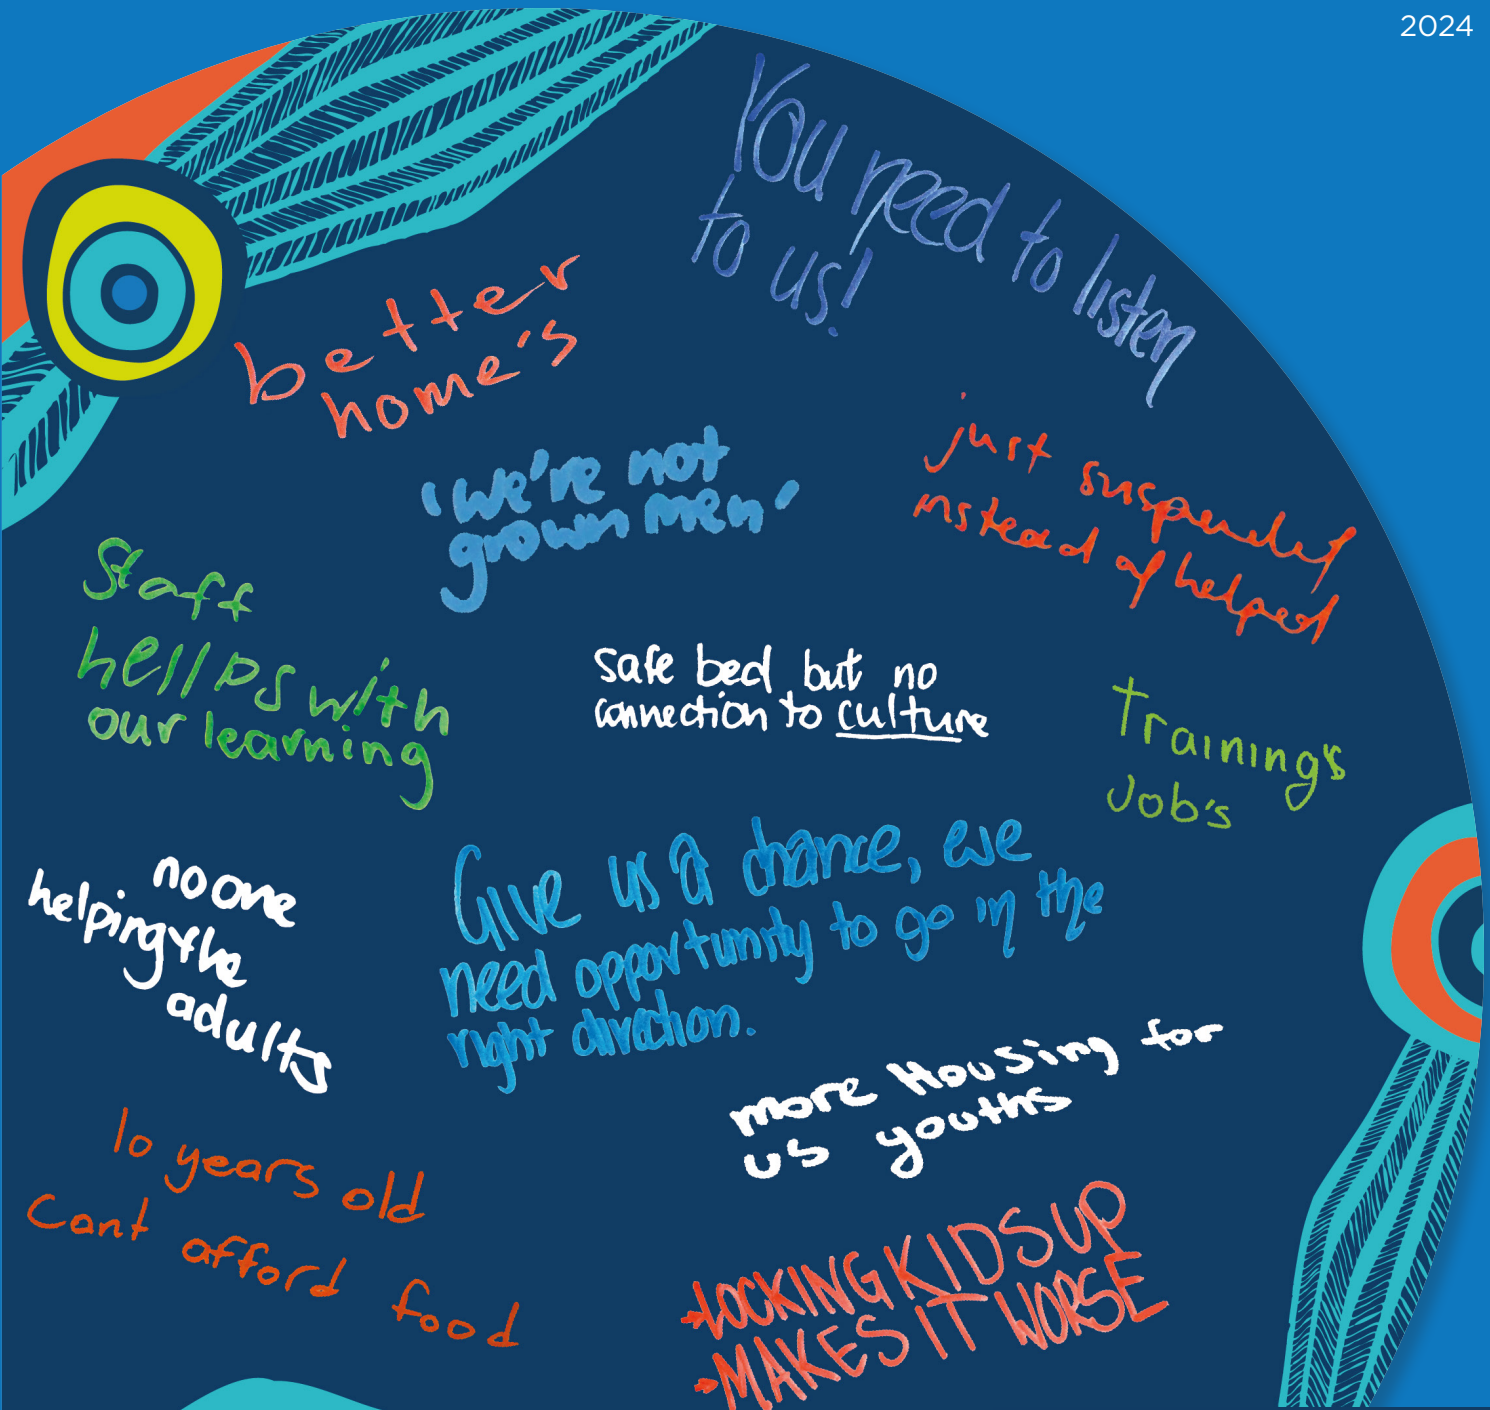 2024
You need to listen
to us!
better
home's
'we're not
grown men'
just suspended
instead of helped
Staff
hellps with
our learning
safe bed but no
connection to culture
Training's
Job's
no one
helping the
adults
Give us a chance, we
need opportunity to go in the
right direction.
more Housing for
us youths
10 years old
Cant afford food
LOCKING KIDS UP
MAKES IT WORSE